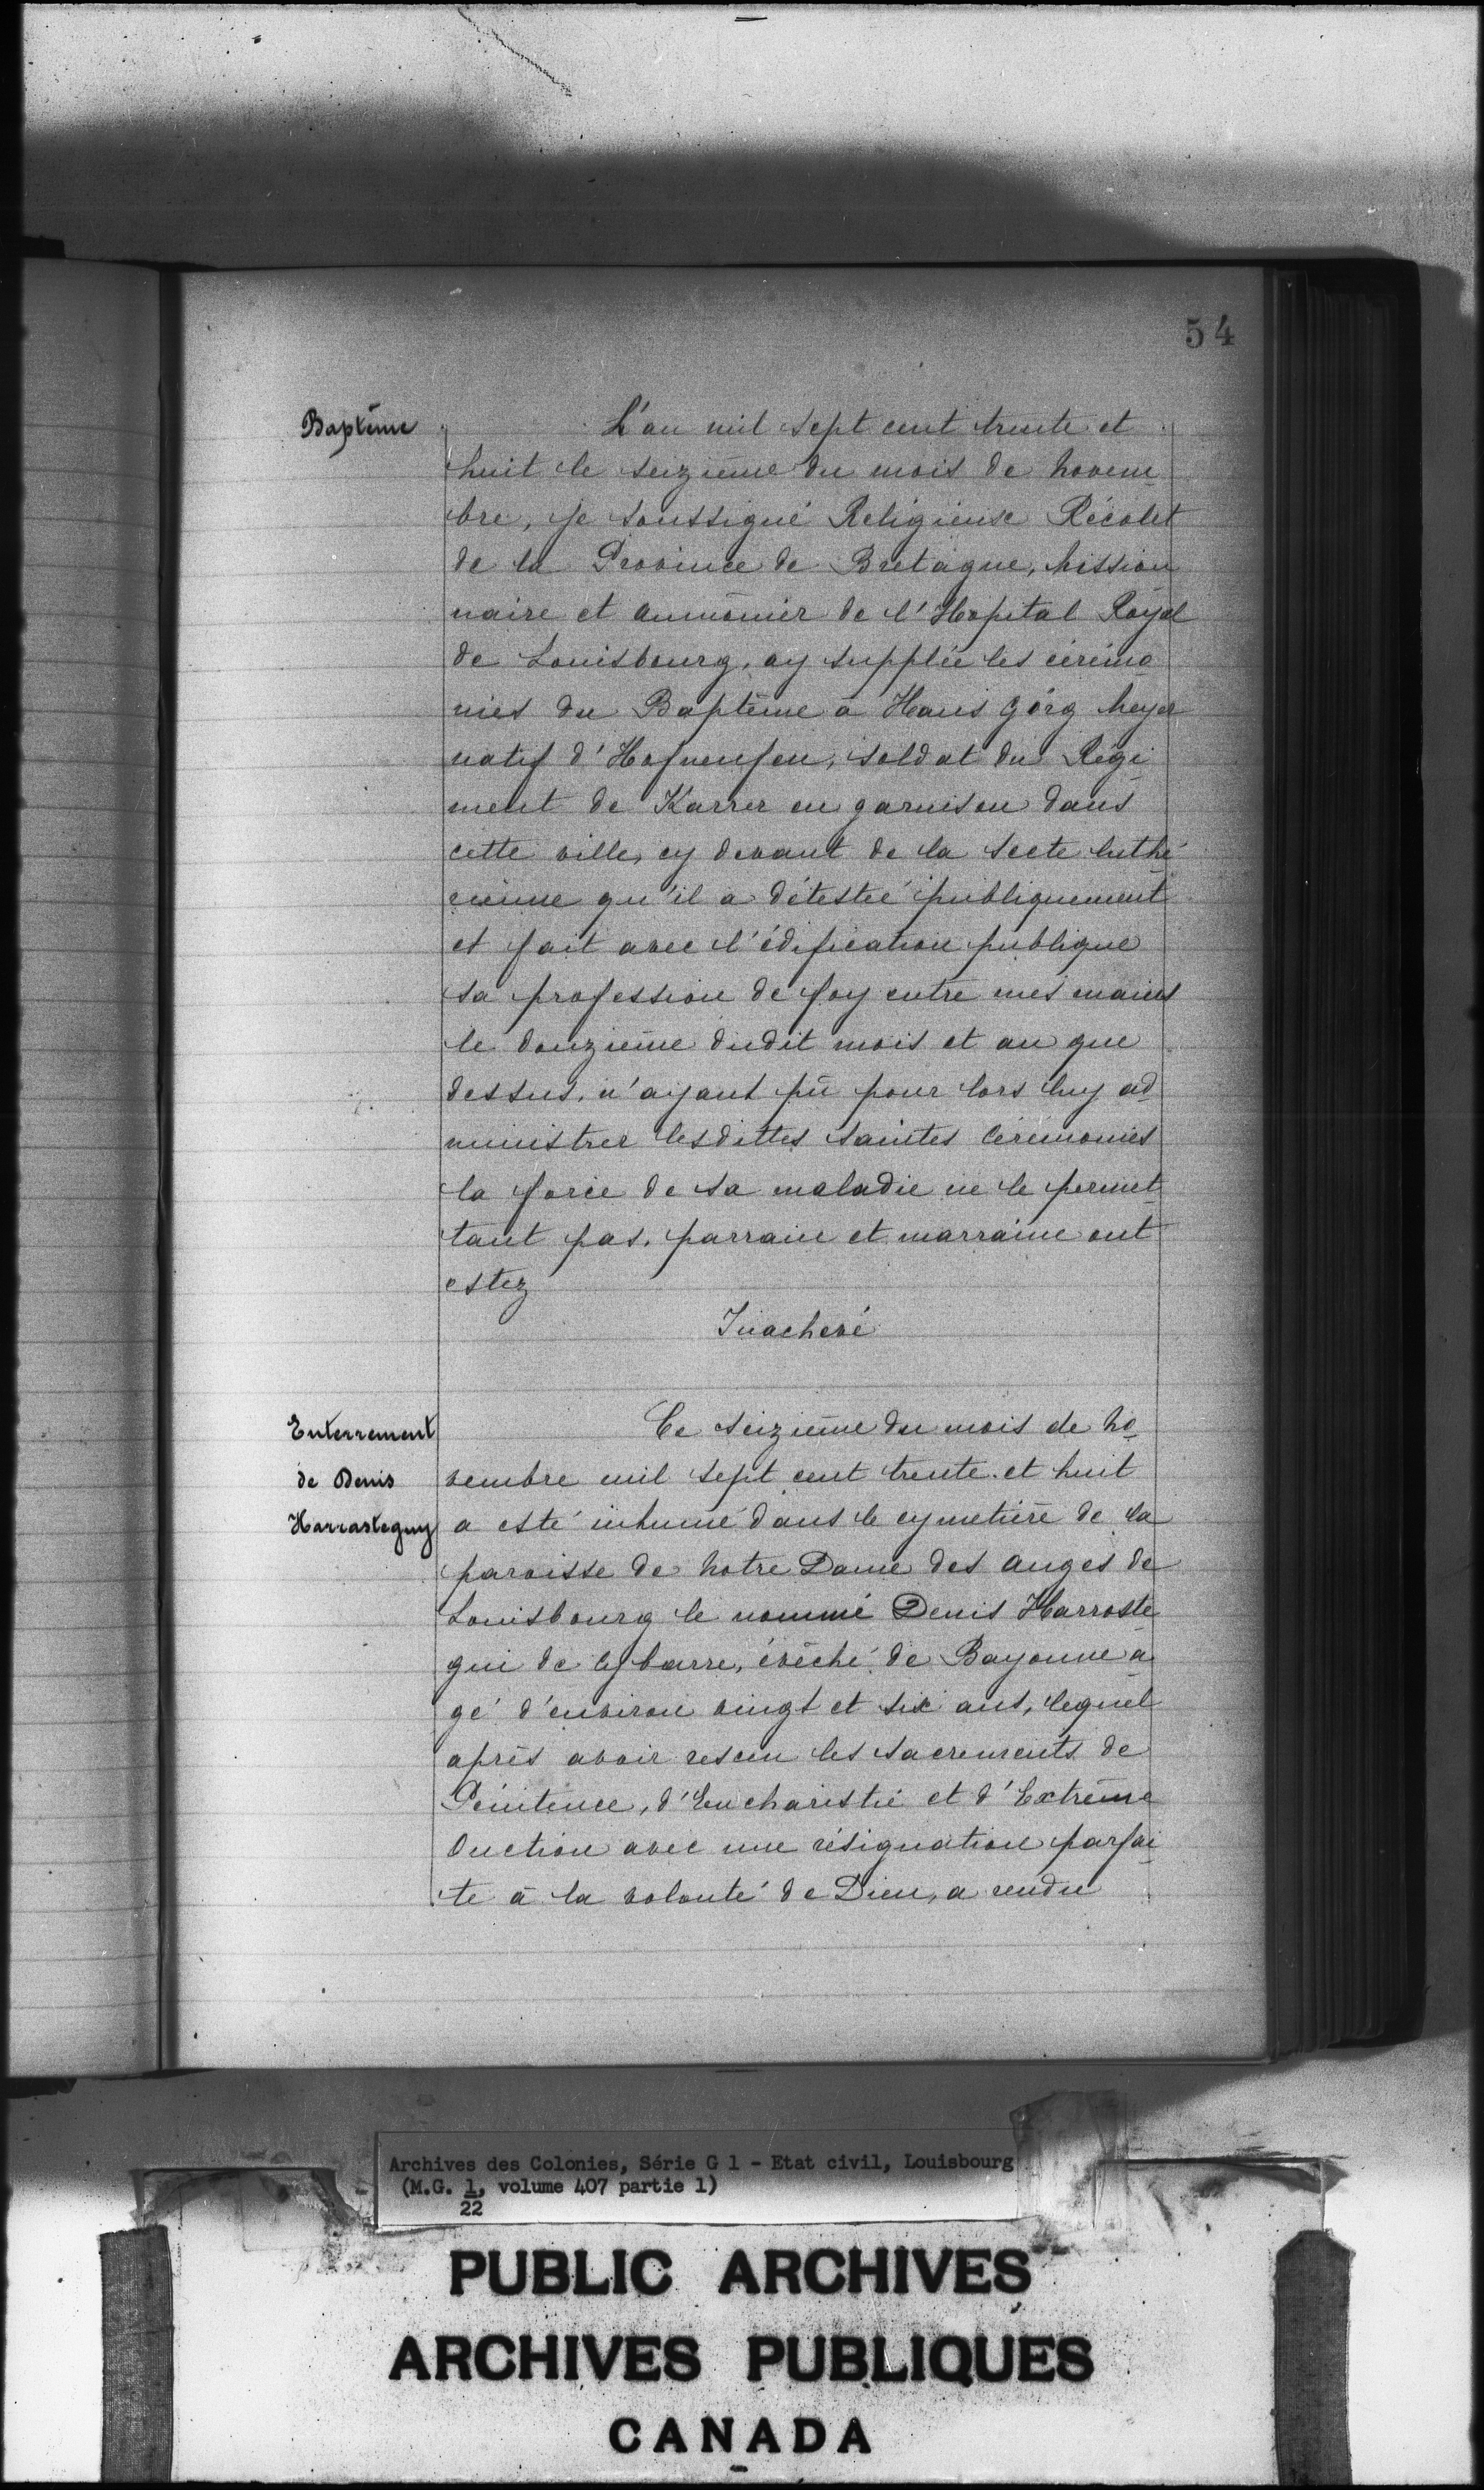 54
Baptême
L'an mil sept cent trente et
huit le seizième du mois de Novem
bre, Je soussigné Religieuse Récolet
de la Province de Bretagne, Mission
naire et aumônier de l'Hopital Royal
de Louisbourg, ay supplée les cérémo
nies du Baptême à Hans Görg Meyer
natif d', soldat du Régi
ment de Karrer en garnison dans
cette ville, cy devant de la secte luthé
rienne qu'il a détestée publiquement
et fait avec l'édification publique
sa profession de foy entre mes mains
le douzième dudit mois et an que
dessus, n'ayant pû pour lors luy ad
ministrer lesdittes saintes Cérémonies
la force de sa maladie ne le permet
tant pas. parrain et marraine ont
estez
Inachevé
Enterrement
de Denis
Harrasteguy
Ce seizième du mois de No
vembre mil sept cent trente et huit
a esté inhumé dans le cymetière de la
paroisse de Notre Dame des anges de
Louisbourg le nommé Denis Harroste
gui de, évêché de Bayonne a
gé d'environ vingt et six ans, lequel
après avoir resceu les sacrements de
Pénitence, d'Eucharistie et d'Extrême
Onction avec une résignation parfai
te à la volonté de Dieu, a rendu
Archives des Colonies, Série G 1 - Etat civil, Louisbourg
(M.G. 1, volume 407 partie 1)
22
PUBLIC ARCHIVES
ARCHIVES PUBLIQUES
CANADA